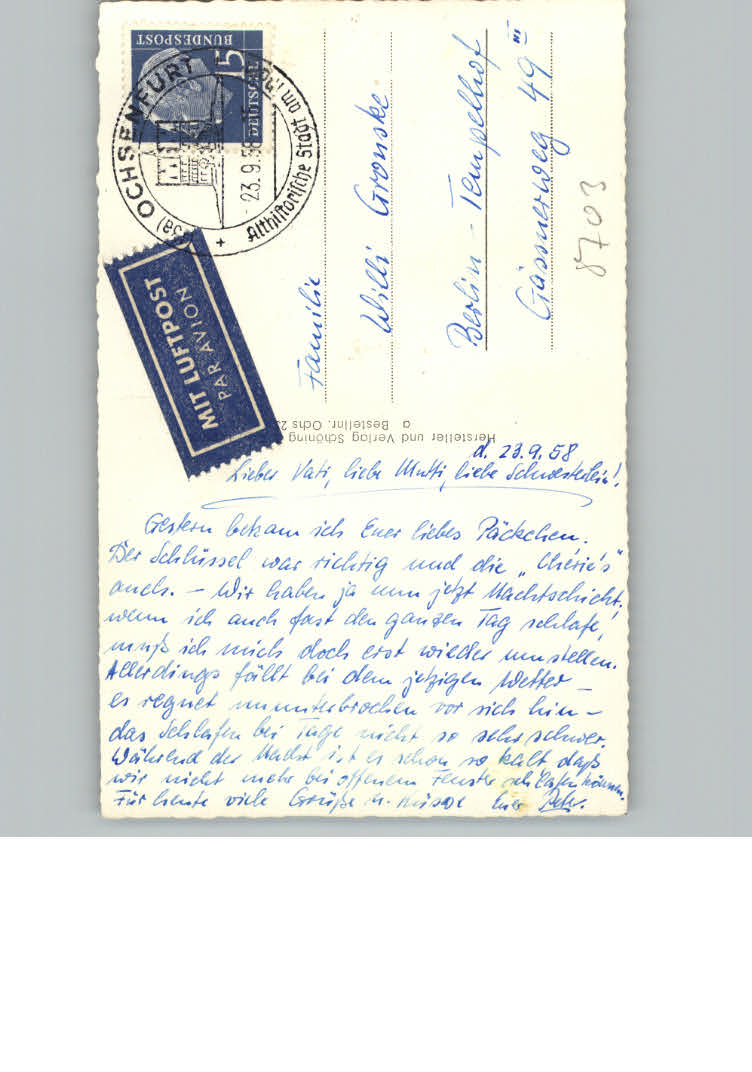 d. 23.9.58
Lieber Vati, liebe Mutti, liebe Schwesterlein!
Gestern bekam ich Euer liebes Päckchen.
Der Schlüssel war richtig und die „Chérie's“
auch. – Wir haben ja nun jetzt Nachtschicht;
wenn ich auch fast den ganzen Tag schlafe,
muß ich mich doch erst wieder umstellen.
Allerdings fällt bei dem jetzigen Wetter –
es regnet ununterbrochen vor sich hin –
das Schlafen bei Tage nicht so sehr schwer.
Während der Nacht ist es schon so kalt daß
wir nicht mehr bei offenem Fenster schlafen können.
Für heute viele Grüße u. Küsse Euer
Familie
Willi Gronske
Berlin - Tempelhof
Gässnerweg 49 III
8703
DEUTSCHE
BUNDESPOST
15
(13a) OCHSENFURT
23.9.58
Althistorische Stadt am
MIT LUFTPOST
PAR AVION
Hersteller und Verlag Schöning
a Bestellnr. Ochs 2